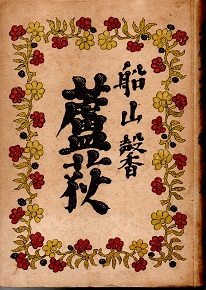 船山馨
蘆荻